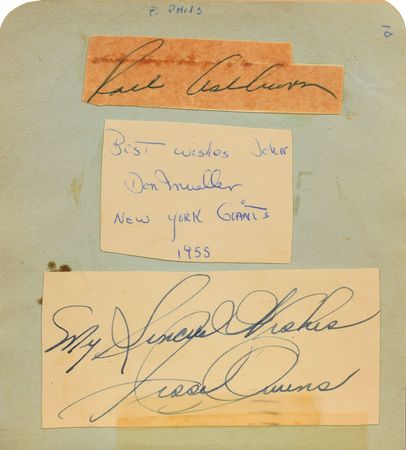 P. PHILS
10
Rich Ashburn
Best wishes John
Don Mueller
NEW YORK GIANTS
1955
My Sincere Wishes
Jesse Owens